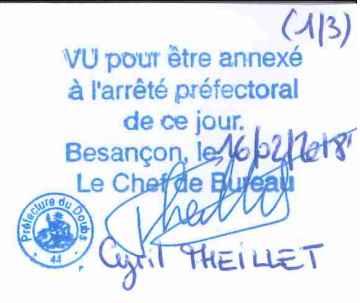 (1/3)
VU pour être annexé
à l'arrêté préfectoral
de ce jour.
Besançon, le 16/02/2018
Le Chef de Bureau
Préfecture du Doubs
44
Cyril THEILLET